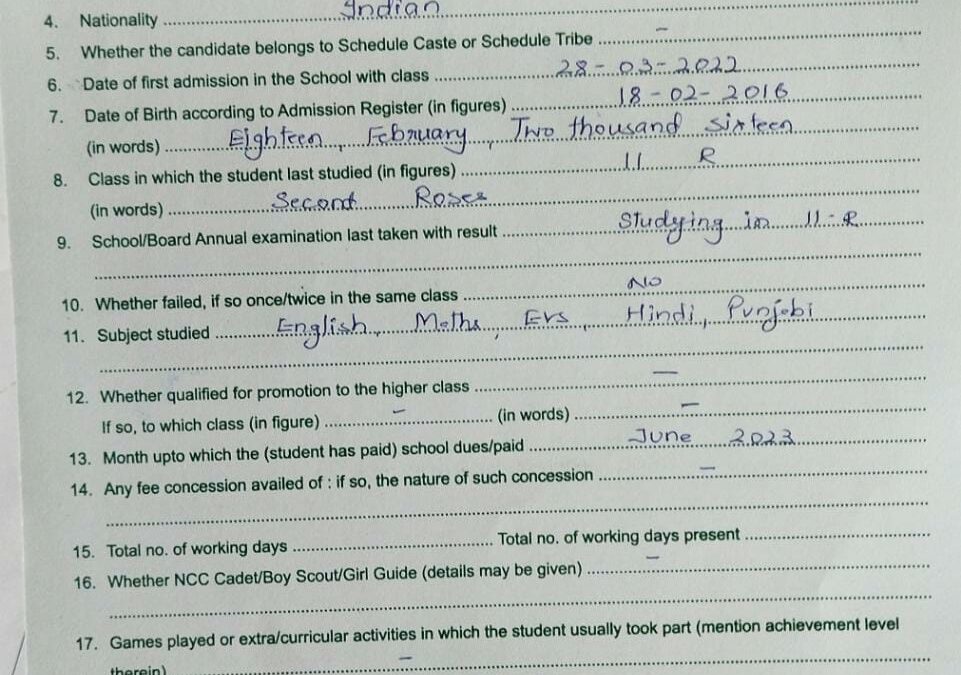 4. Nationality Indian
5. Whether the candidate belongs to Schedule Caste or Schedule Tribe –
6. Date of first admission in the School with class 28-03-2022
7. Date of Birth according to Admission Register (in figures) 18-02-2016
(in words) Eighteen, February, Two thousand sixteen
8. Class in which the student last studied (in figures) II R
(in words) Second Roses
9. School/Board Annual examination last taken with result Studying in II-R
10. Whether failed, if so once/twice in the same class NO
11. Subject studied English, Maths, EVS, Hindi, Punjabi
12. Whether qualified for promotion to the higher class –
If so, to which class (in figure) – (in words) –
13. Month upto which the (student has paid) school dues/paid June 2023
14. Any fee concession availed of : if so, the nature of such concession –
15. Total no. of working days Total no. of working days present
16. Whether NCC Cadet/Boy Scout/Girl Guide (details may be given) –
17. Games played or extra/curricular activities in which the student usually took part (mention achievement level
therein) –